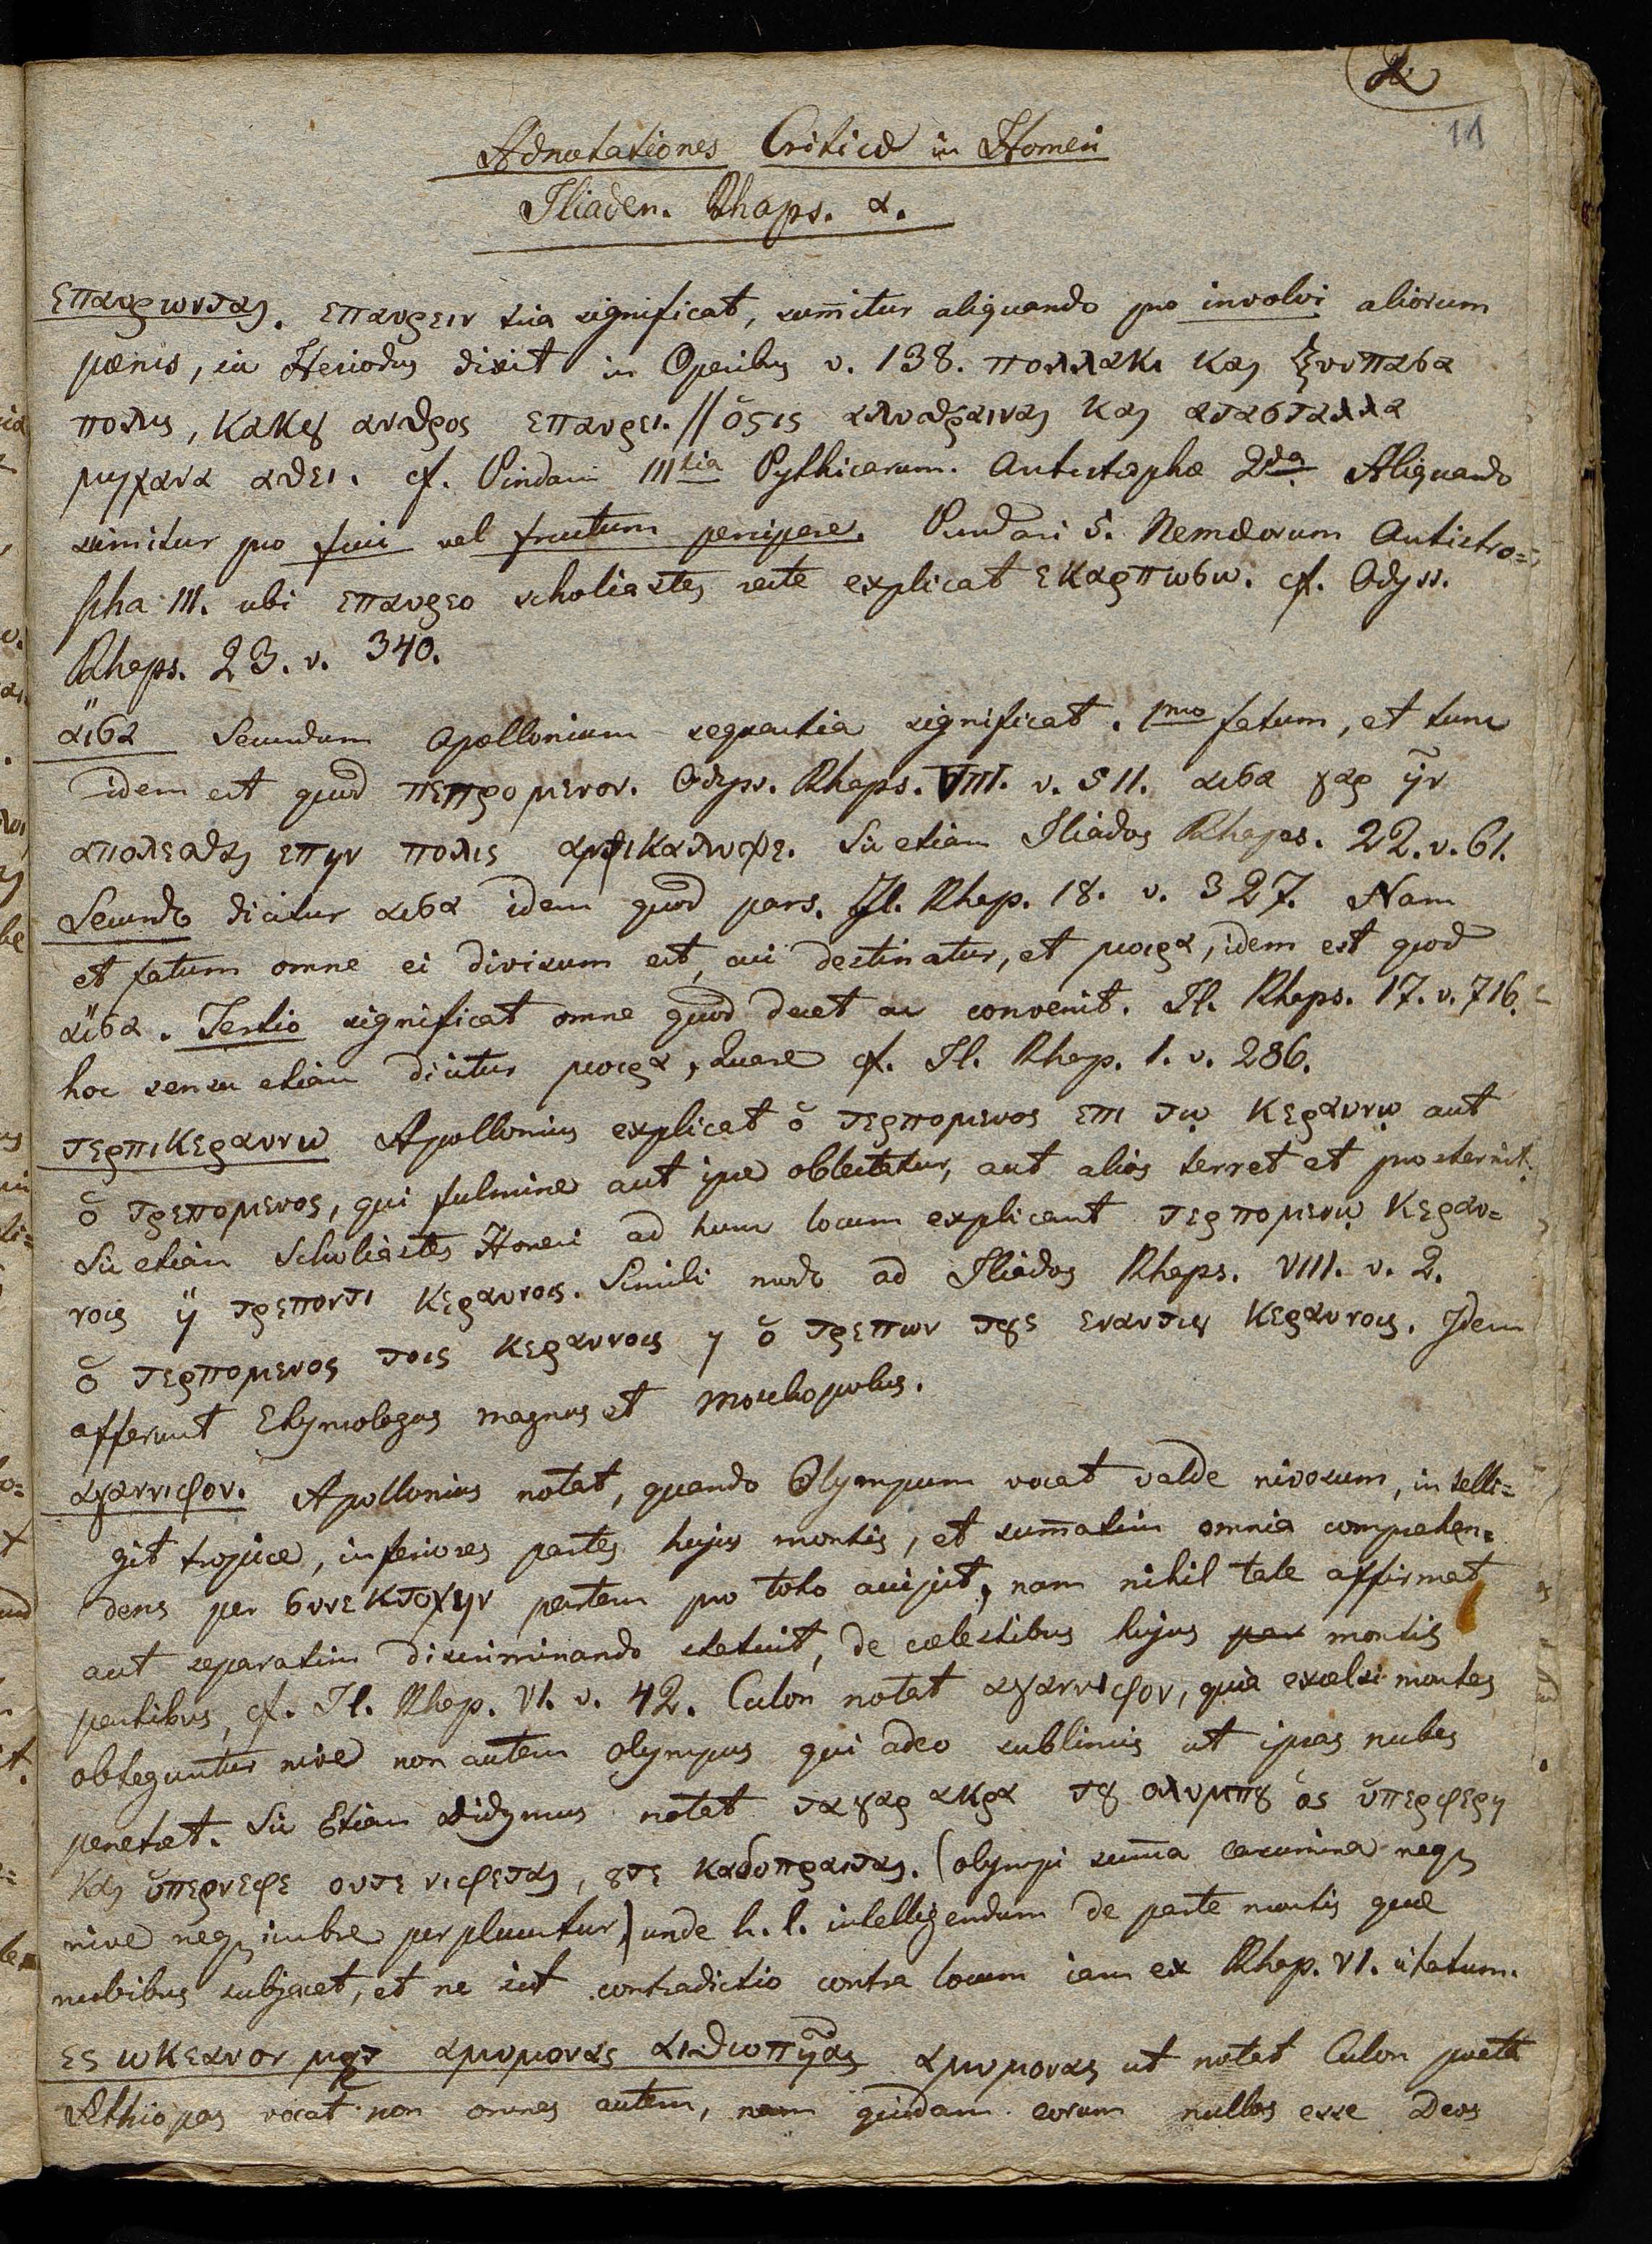 11
Adnotationes Criticæ in Homeri
Iliaden. Rhaps. α.
επαυρωνται. επαυρειν sua significat, sumitur aliquando pro involvi aliorum
pœnis, sic Hesiodus dixit in Operibus v. 138. πολλακι και ξυνπασα
πολις, κακȣ ανδρος επαυρει. // ὅςις αλιτραινει και ατασταλλα
μηχανα αθει. cf. Pindari IIItia Pythicarum. Antistrophæ 2da Aliquando
sumitur pro frui vel fructum percipere. Pindari 5. Nemæorum Antistro=
pha III. ubi επαυρεο scholiastes recte explicat εκαρπωσω. cf. Odyss.
Rhaps. 23. v. 340.
ἄισα Secundum Apollonium sequentia significat. 1mo fatum, et tunc
idem est quod πεπρομενον. Odyss. Rhaps. VIII. v. 511. αισα γαρ ἦν
απολεσθαι επην πολις αμφικαλυψε. Sic etiam Iliados Rhaps. 22. v. 61.
Secundo dicitur αισα idem quod pars. Il. Rhap. 18. v. 327. Nam
et fatum omne ei divisum est, cui destinatur, et μοιρα, idem est quod
ἄισα. Tertio significat omne quod decet ac convenit. Il. Rhaps. 17. v. 716.
hoc sensu etiam dicitur μοιρα, quare cf. Il. Rhap. 1. v. 286.
τερπικεραυνω Apollonius explicat ὁ τερπομενος επι τῳ κεραυνῳ aut
ὁ τρεπομενος, qui fulmine aut ipse oblectatur, aut alios terret et prosternit.
Sic etiam Scholiastes Homeri ad hunc locum explicant τερπομενῳ κεραυ=
νοις ἢ τρεποντι κεραυνοις. Simili modo ad Iliados Rhaps. VIII. v. 2.
ὁ τερπομενος τοις κεραυνοις η ὁ τρεπων τȣς εναντιȣ κεραυνοις. Idem
afferunt Etymologus magnus et Moschopolus.
αγαννιφον. Apollonius notat, quando Olympum vocat valde nivosum, intelli=
git tropice, inferiores partes hujus montis, et summatim omnia comprehen=
dens per συνεκτοχην partem pro toto accipit, nam nihil tale affirmat
aut separatim discriminando statuit, de cælestibus hujus par montis
partibus, cf. Il. Rhap. VI. v. 42. Culon notat αγαννιφον, quia excelsi montes
obteguntur nive non autem Olympus qui adeo sublimis ut ipsas nubes
penetret. Sic Etiam Didymus notat τα γαρ ακρα τȣ ολυμπȣ ὁς ὑπερφερη
και ὑπερνεφε ουτε νιφεται, ȣτε καδοπραιται. (olympi summa cacumina neq;
nive neq; imbre perpluuntur) unde h. l. intelligendum de parte montis quæ
nubibus subjacet, et ne sit contradictio contra locum iam ex Rhap. VI. citatum.
ες ωκεανον μετ αμυμονας αιθιοπῆας αμυμονας ut notat Culon poeta
Æthiopas vocat non omnes autem, nam quidam eorum nullos esse Deos